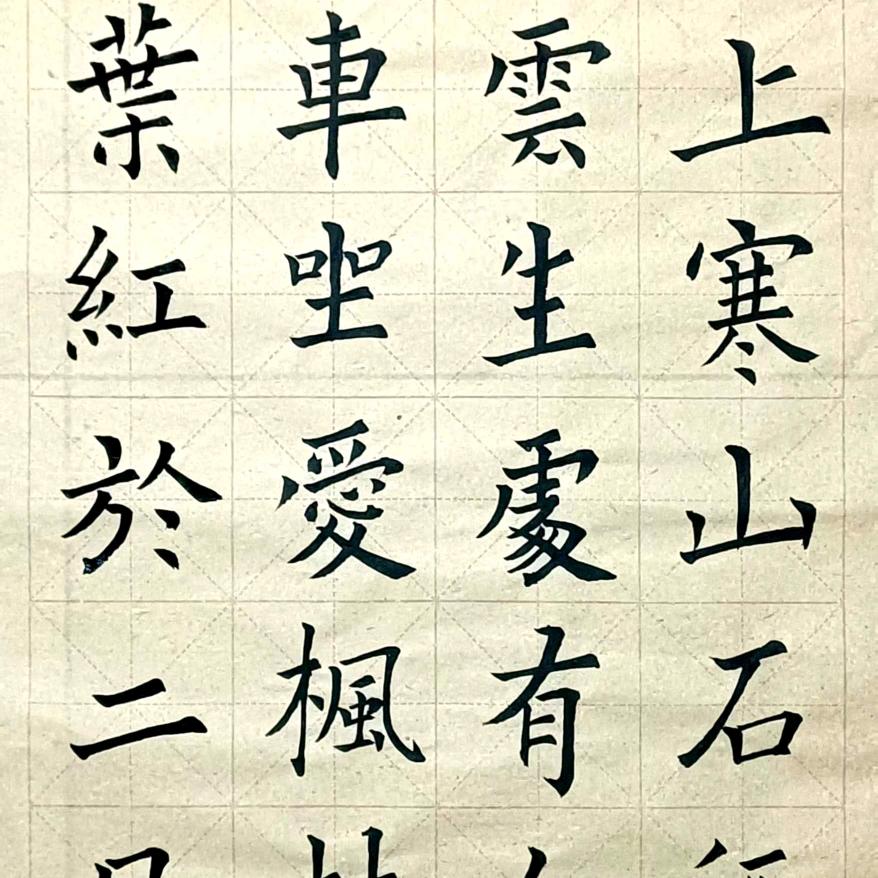 上寒山石
雲生處有
車坐愛楓
葉紅於二